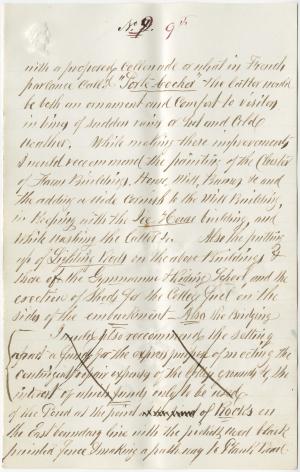 No. 9. 9th
with a proposed colonade or what in French
parlance called "Porte-Cochea" the latter would
be both an ornament and Comfort to visitors
in times of sudden rains or hot and Cold
weather. While making these improvements
I would recommend the painting of the Cluster
of Farm Buildings, House, Mill, Barns &c and
the adding a slide Cornish to the Mill Building,
in Keeping with the Ice House building, and
White Washing the latter &c. Also the putting
up of Lightning Rods on the above Buildings &
those of the Gymnasium & Riding School, and the
erection of Sheds for the College fuel on the
sides of the embankment - Also the Bridging
I would also recommend the setting
apart a fund for the express purpose of meeting the
Contingent repair expenses of the College grounds &c the
interest of which funds only to be used
of the Pond at the point of Rocks on
the East boundary line with the picket, wood black
painted fence & making a path way to Plank Road